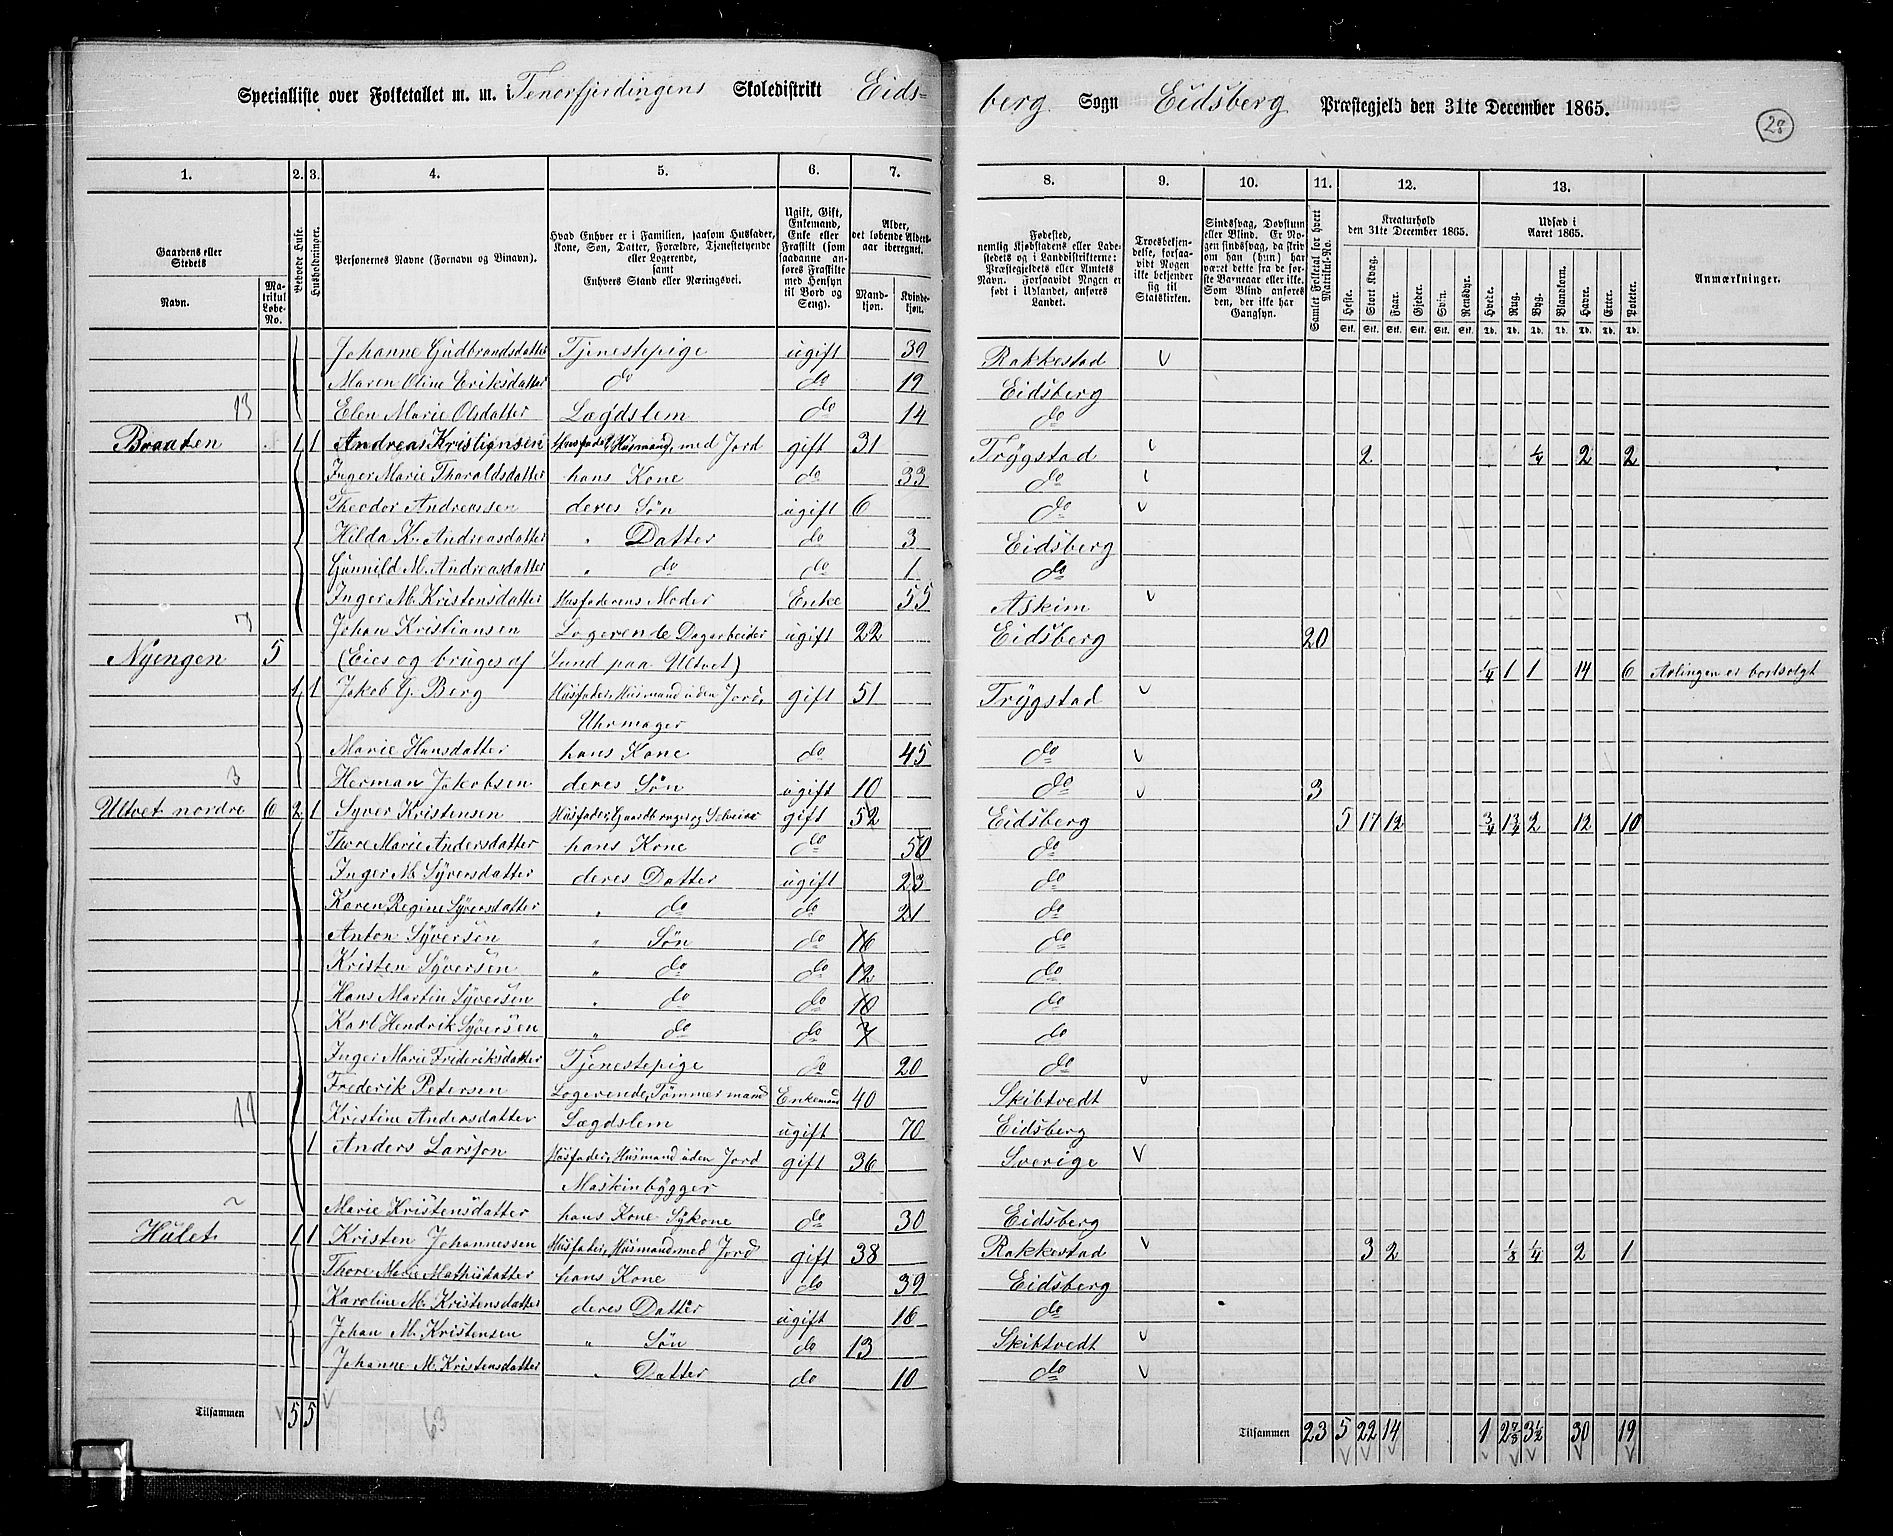 Specialliste over Folketallet m. m. i Tenorfjerdingens Skoledistrikt Eidsberg Sogn Eidsberg Præstegjeld den 31te December 1865.
28
1. 2. 3. 4. 5. 6. 7. 8. 9. 10. 11. 12. 13.
Gaardens eller Stedets Navn.
Matrikul Løbe-No.
Beboede Huse.
Husholdninger.
Personernes Navne (Fornavn og Vinavn).
Hvad Enhver er i Familien, saasom Husfader, Kone, Søn, Datter, Forældre, Tjenestetyende eller Logerende, samt Enhvers Stand eller Næringsvei.
Ugift, Gift, Enkemand, Enke eller Fraskilt (som saadanne anføres Fraskilte med Hensyn til Bord og Seng).
Alder, det løbende Aldersaar iberegnet.
Mandkjøn. Kvindekjøn.
Fødested, nemlig Kjøbstadens eller Ladestedets og i Landdistrikterne: Præstegjeldets eller Amtets Navn. Forsaavidt Nogen er født i Udlandet, anføres Landet.
Troesbekjendelse, forsaavidt Nogen ikke bekjender sig til Statskirken.
Sindssvag, Døvstum eller Blind. Er Nogen sindssvag, da skriv om han (hun) har været dette fra de første Barneaar eller ikke. Som Blind anføres den, der ikke har Gangsyn.
Samlet Folketal for hvert Matrikul-No.
Kreaturhold den 31te December 1865.
Heste. Stort Kvæg. Faar. Gjeder. Svin. Rensdyr.
Udsæd i Aaret 1865.
Hvede. Rug. Byg. Blandkorn. Havre. Erter. Poteter.
Anmærkninger.
Johanne Gudbrandsdatter Tjenestepige ugift 39 Rakkestad
Maren Oline Eriksdatter do do 19 Eidsberg
13 Elen Marie Olsdatter Lægdslem do 14 do
Braaten 1 1 Andreas Kristiansen Husfader, Husmand med Jord gift 31 Trygstad 2 1/4 2 2
Inger Marie Tharaldsdatter hans Kone do 33 do
Theodor Andreassen deres Søn ugift 6 do
Hilda K. Andreasdatter " Datter do 3 Eidsberg
Gunnild M. Andreasdatter " do do 1 do
Inger M. Kristensdatter Husfaderens Moder Enke 55 Askim
7 Johan Kristiansen Logerende Dagarbeider ugift 22 Eidsberg 20
Nyengen 5 (Eies og bruges af Lund paa Ultvet) 1/4 1 1 14 6 Avlingen er bortsolgt
1 1 Jakob G. Berg Husfader, Husmand uden Jord, gift 51 Trygstad
Uhrmager
Marie Hansdatter hans Kone do 45 do
3 Herman Jakobsen deres Søn ugift 10 do 3
Ultvet nordre 6 2 1 Syver Kristensen Husfader, Gaardbruger og Selveier gift 52 Eidsberg 5 17 12 3/4 1 3/4 2 12 10
Thore Marie Andersdatter hans Kone do 50 do
Inger M. Syversdatter deres Datter ugift 23 do
Karen Regine Syversdatter " do do 21 do
Anton Syversen " Søn do 16 do
Kristen Syversen " do do 12 do
Hans Martin Syversen " do do 10 do
Karl Hendrik Syversen " do do 7 do
Inger Marie Frideriksdatter Tjenestepige do 20 do
Frederik Petersen Logerende, Tømmermand Enkemand 40 Skibtvedt
11 Kristine Andersdatter Lægdslem ugift 70 Eidsberg
1 Anders Larsson Husfader, Husmand uden Jord gift 36 Sverige
Maskinbygger
2 Marie Kristensdatter hans Kone Sykone do 30 Eidsberg
Hulet 1 1 Kristen Johannessen Husfader, Husmand med Jord gift 38 Rakkestad 3 2 1/8 1/4 2 1
Thore Marie Mathisdatter hans Kone do 39 Eidsberg
Karoline M. Kristensdatter deres Datter ugift 16 do
Johan M. Kristensen " Søn do 13 Skibtvedt
Johanne M. Kristensdatter " Datter do 10 do
Tilsammen 5 5 63 Tilsammen 23 5 22 14 1 2 7/8 3 1/2 30 19